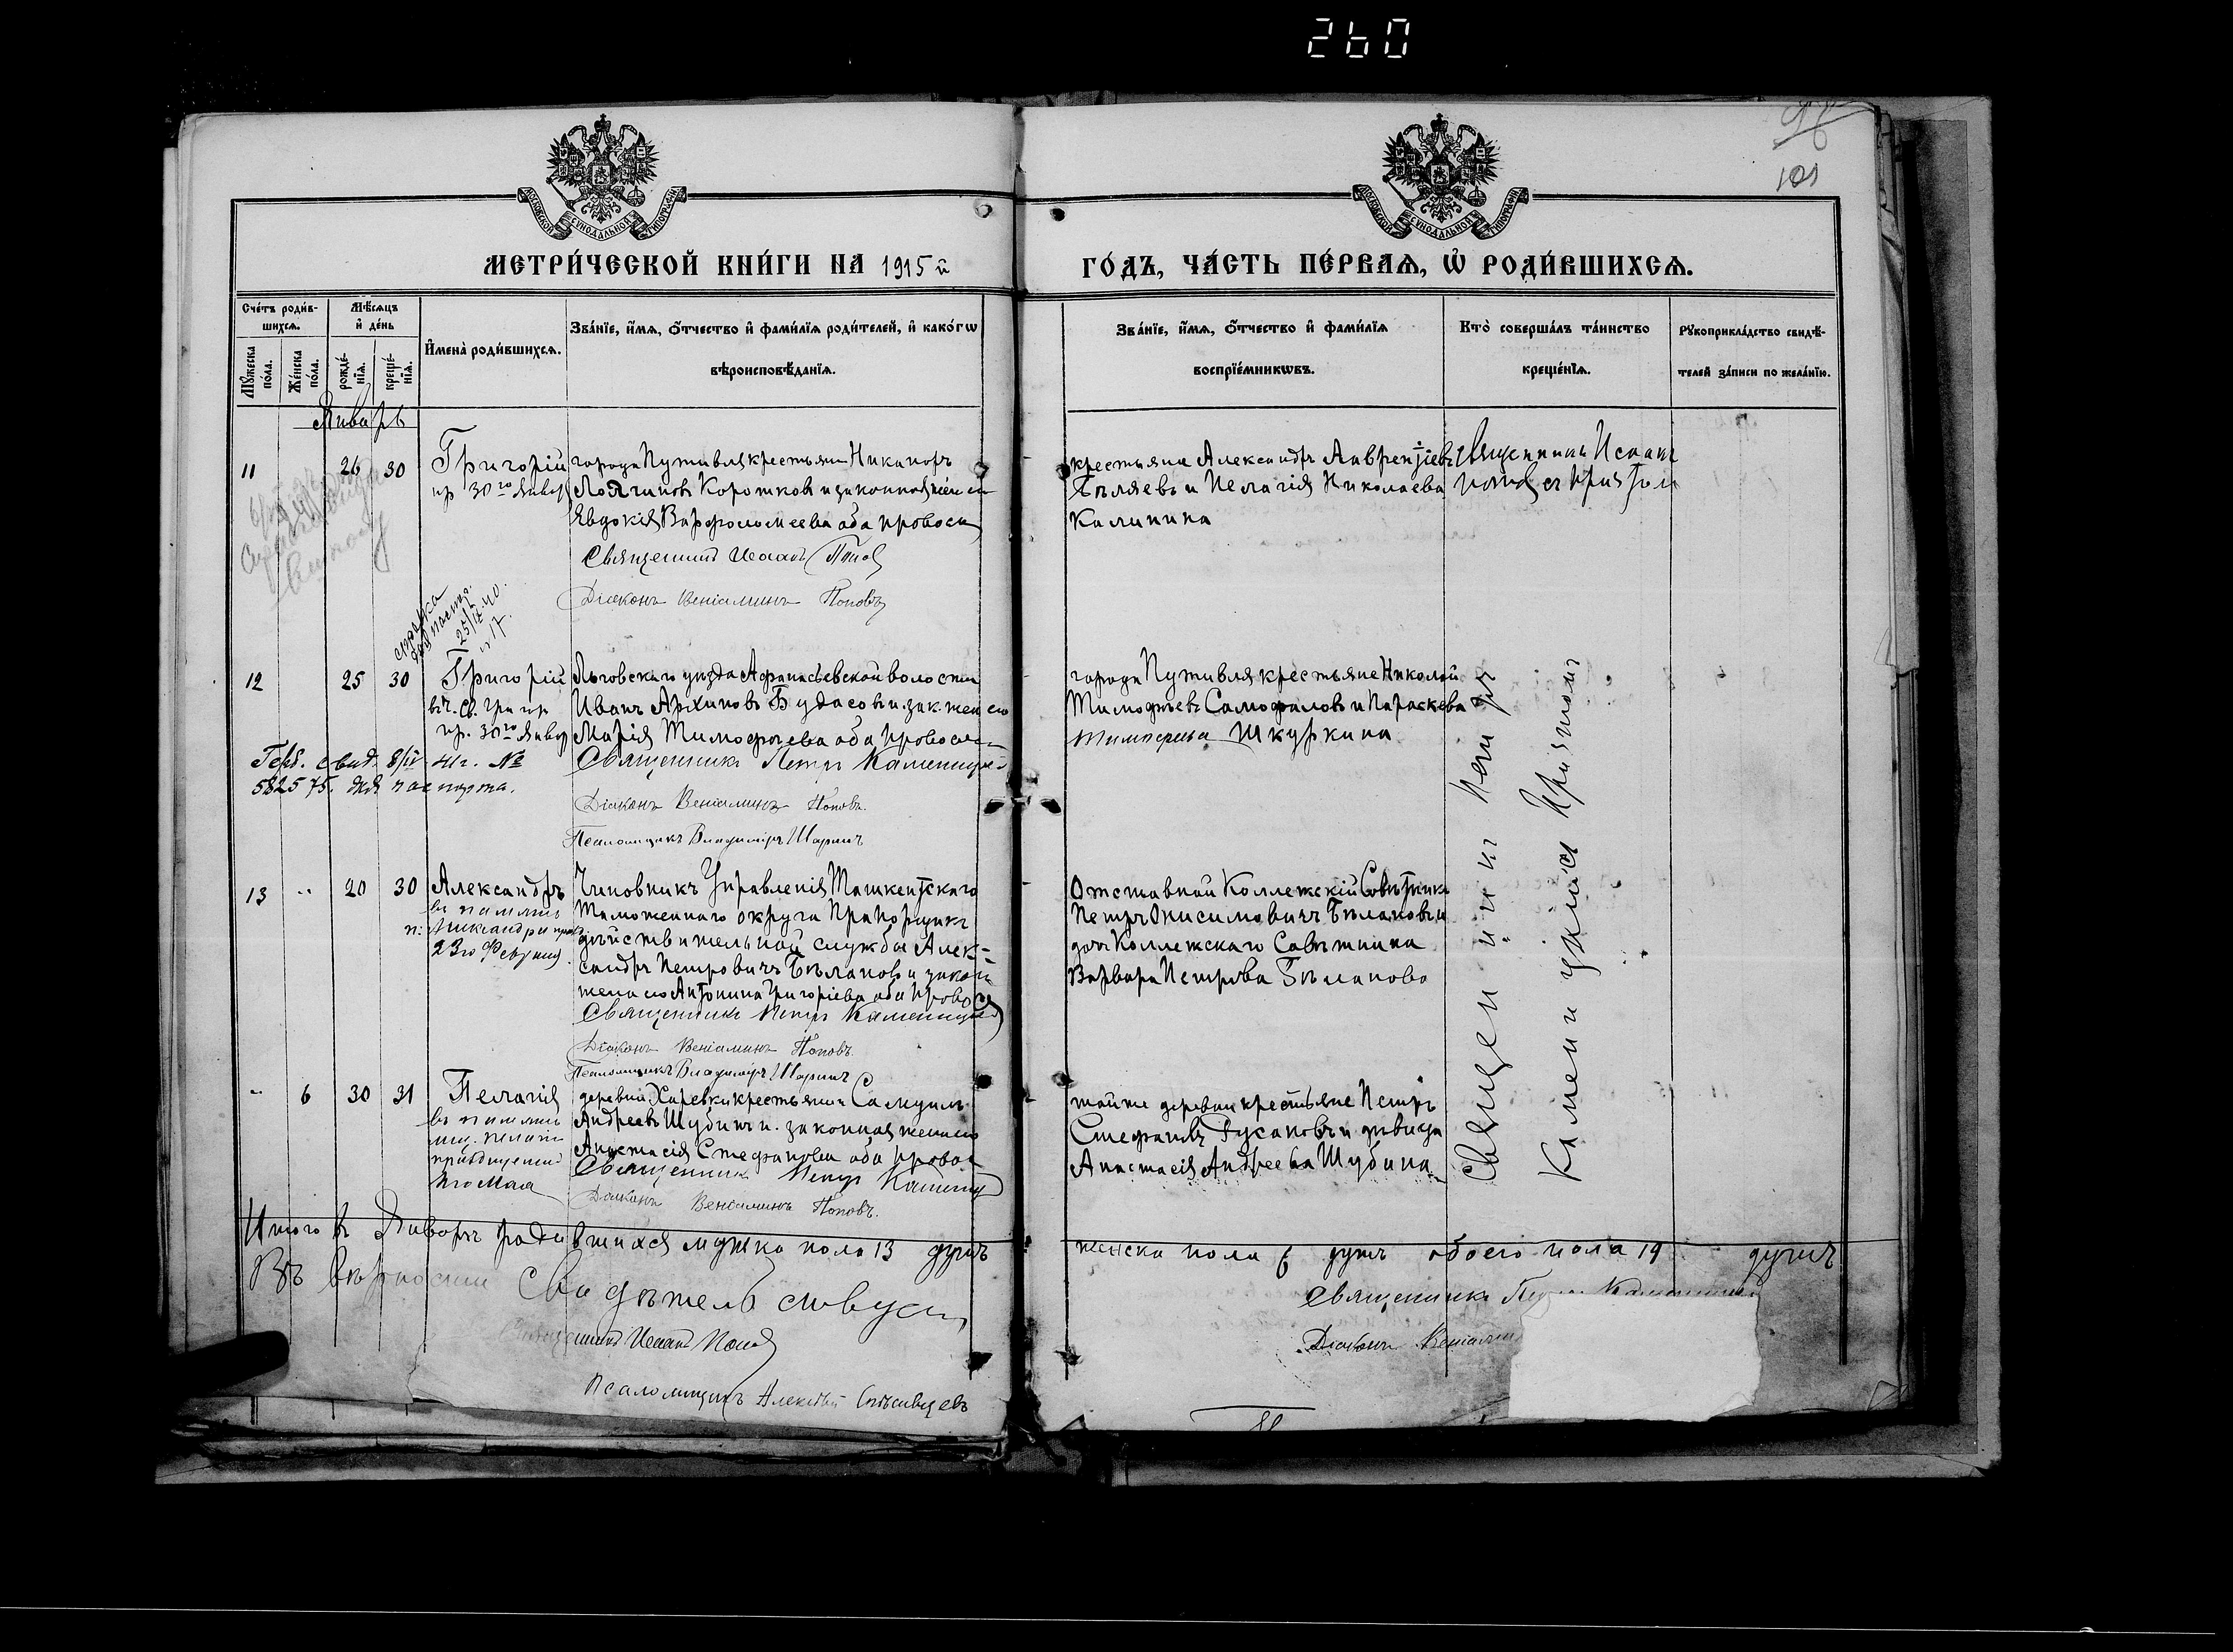 260
101
МЕТРИ́ЧЕСКОЙ КНИ́ГИ НА 1915 й
ГО́ДЪ, ЧА́СТЬ ПЕ́РВАѦ, Ѡ РОДИ́ВШИХСѦ.
Сче́тъ роди́в-
шихсѧ.
Мꙋ́жеска по́ла.
Же́нска по́ла.
Мѣ́сѧцъ
и҆ де́нь
рожде́-
нїѧ.
креще́-
нїѧ.
И҆мена̀ роди́вшихсѧ.
Зва́нїе, и҆́мѧ, ѻ҆́тчество и҆ фами́лїѧ роди́телей, и҆ како́гѡ
вѣроисповѣ́данїѧ.
Зва́нїе, и҆́мѧ, ѻ҆́тчество и҆ фами́лїѧ
воспрїе́мникѡвъ.
Кто̀ соверша́лъ та́инство
креще́нїѧ.
Рꙋкоприкла́дство свидѣ́-
телей за́писи по жела́нїю.
Январь
11 26 30
Григорій
пр 30го Январ
города Путивля крестьянин Никаноръ
Логгиновъ Коротковъ и законная жена ег
Евдокія Варфоломеева оба правосл
Священникъ Исаакъ Попов
Діаконъ Веніаминъ Поповъ
крестьяне Александръ Лаврентіевъ
Бѣляевъ и Пелагія Николаева
Калинина
Священникъ Исаакъ
Попов съ Притом
справка
для паспорта
25/IX 40.
12 25 30
Григорій
пр. 30го Январ
Герб. свид. 8/IV 41г. №
582575. для паспорта.
Льговскаго уѣзда Афанасьевской волости
Иванъ Архиповъ Будасовъ и зак. жен его
Марія Тимофѣева оба правосл
Священникъ Петръ Каменицкій
Діаконъ Веніаминъ Поповъ.
Псаломщикъ Владиміръ Шаринъ
города Путивля крестьяне Николай
Тимофѣевъ Самофаловъ и Параскева
Шкуркина
Священникъ Петръ
Каменицкій съ Притомъ
13 " 20 30
Александръ
въ память
23го Февраля
Чиновникъ Управленія Ташкентскаго
Таможеннаго округа Прапорщикъ
дѣйствительной службы Алек-
сандръ Петровичъ Бѣлановъ и закон
жена его Антонина Григоріева оба правосл
Священникъ Петръ Каменицкій
Діаконъ Веніаминъ Поповъ.
Псаломщикъ Владиміръ Шаринъ
Отставной Коллежскій Совѣтникъ
Петръ Онисимовичъ Бѣлановъ и
дочь Коллежскаго Совѣтника
Варвара Петрова Бѣланова
" 6 30 31
Пелагія
въ память
4го Мая
деревни Харевки крестьянинъ Самуилъ
Андреевъ Шубинъ и законная жена его
Анастасія Стефанова оба правосл
Священникъ Петръ Каменицкій
Діаконъ Веніаминъ Поповъ.
тойже деревни крестьяне Петръ
Стефановъ Гусаковъ и дѣвица
Анастасія Андреева Шубина
Итого въ Январѣ родившихся мужка пола 13 душъ
женска пола 6 душъ обоего пола 19 душъ
Въ вѣрности свидѣтельствуем
Священникъ Исаакъ Попов
Псаломщикъ Алексѣй
Священникъ Петръ
Діаконъ Веніамин